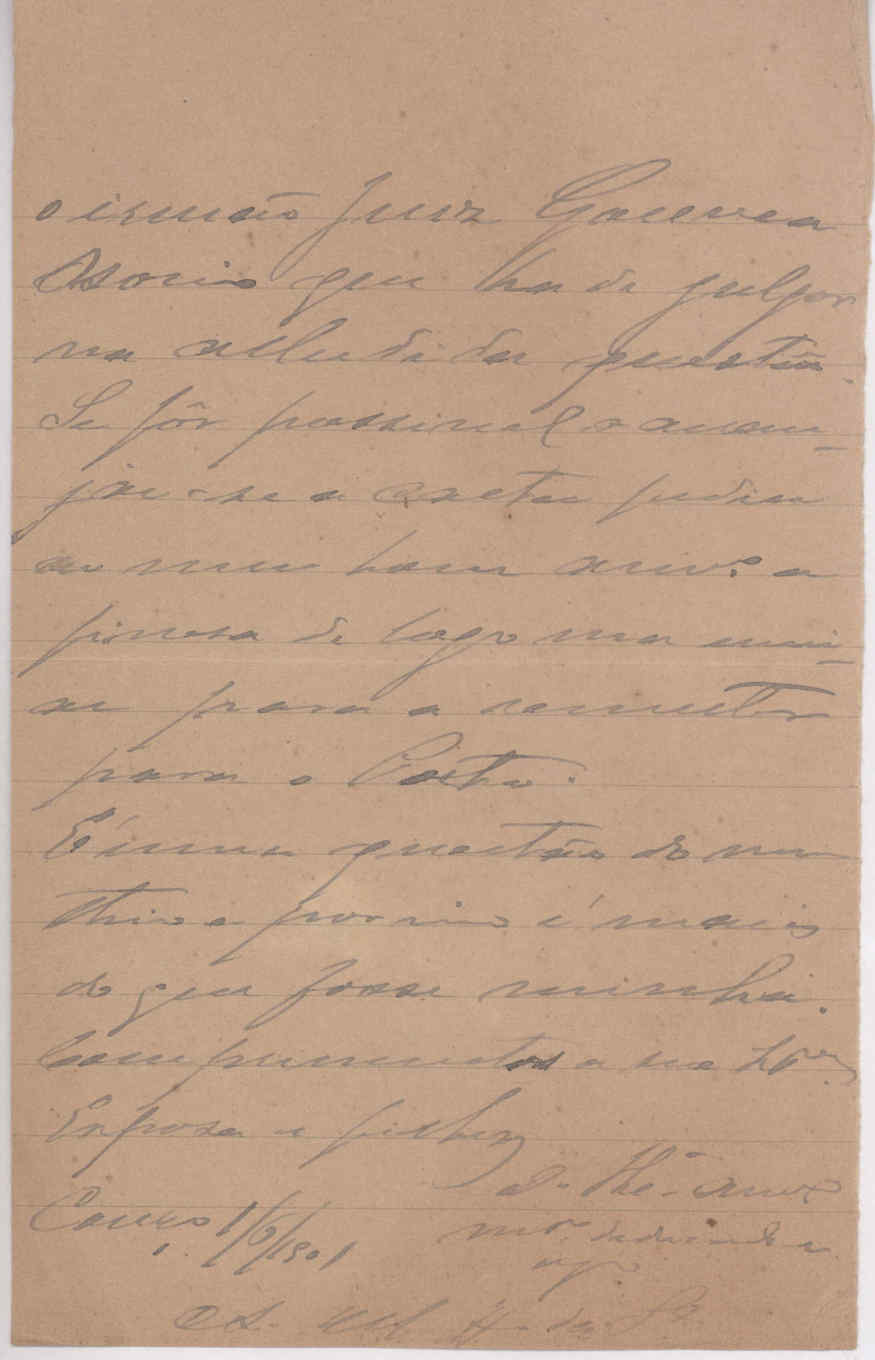 o irmão Juiz Gouvea
Osorio que ha de julgar
na alludida questão.
Se fôr possivel o arran-
jar-se a carta pedia
ao meu bom amº a
fineza de logo m'a envi-
ar para a remetter
para o Porto.
É uma questão do meu
thio e por isso é mais
do que fosse minha.
Comprimentos a sua
Esposa e filhos
De
Coura 1/6/1901
mtº dedicado e